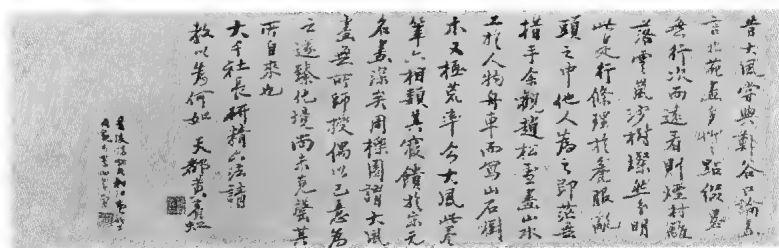 昔大風嘗與鄭谷口論畫
言北苑畫多艸艸點綴略
無行次而遠看則煙村籬
落雲嵐沙樹燦然分明
此是行條理於粗服亂
頭之中他人為之即茫無
措手余觀趙松雪畫山水
工於人物舟車而寫山石樹
木又極荒率今大風此卷
筆六相類其寢饋於宋元
名畫深矣周櫟園謂大風
畫無所師授偶以己意為
之遂臻化境尚未竟罄其
所自來也
大千社長研精六法請
教以為何如 天都黃賓虹